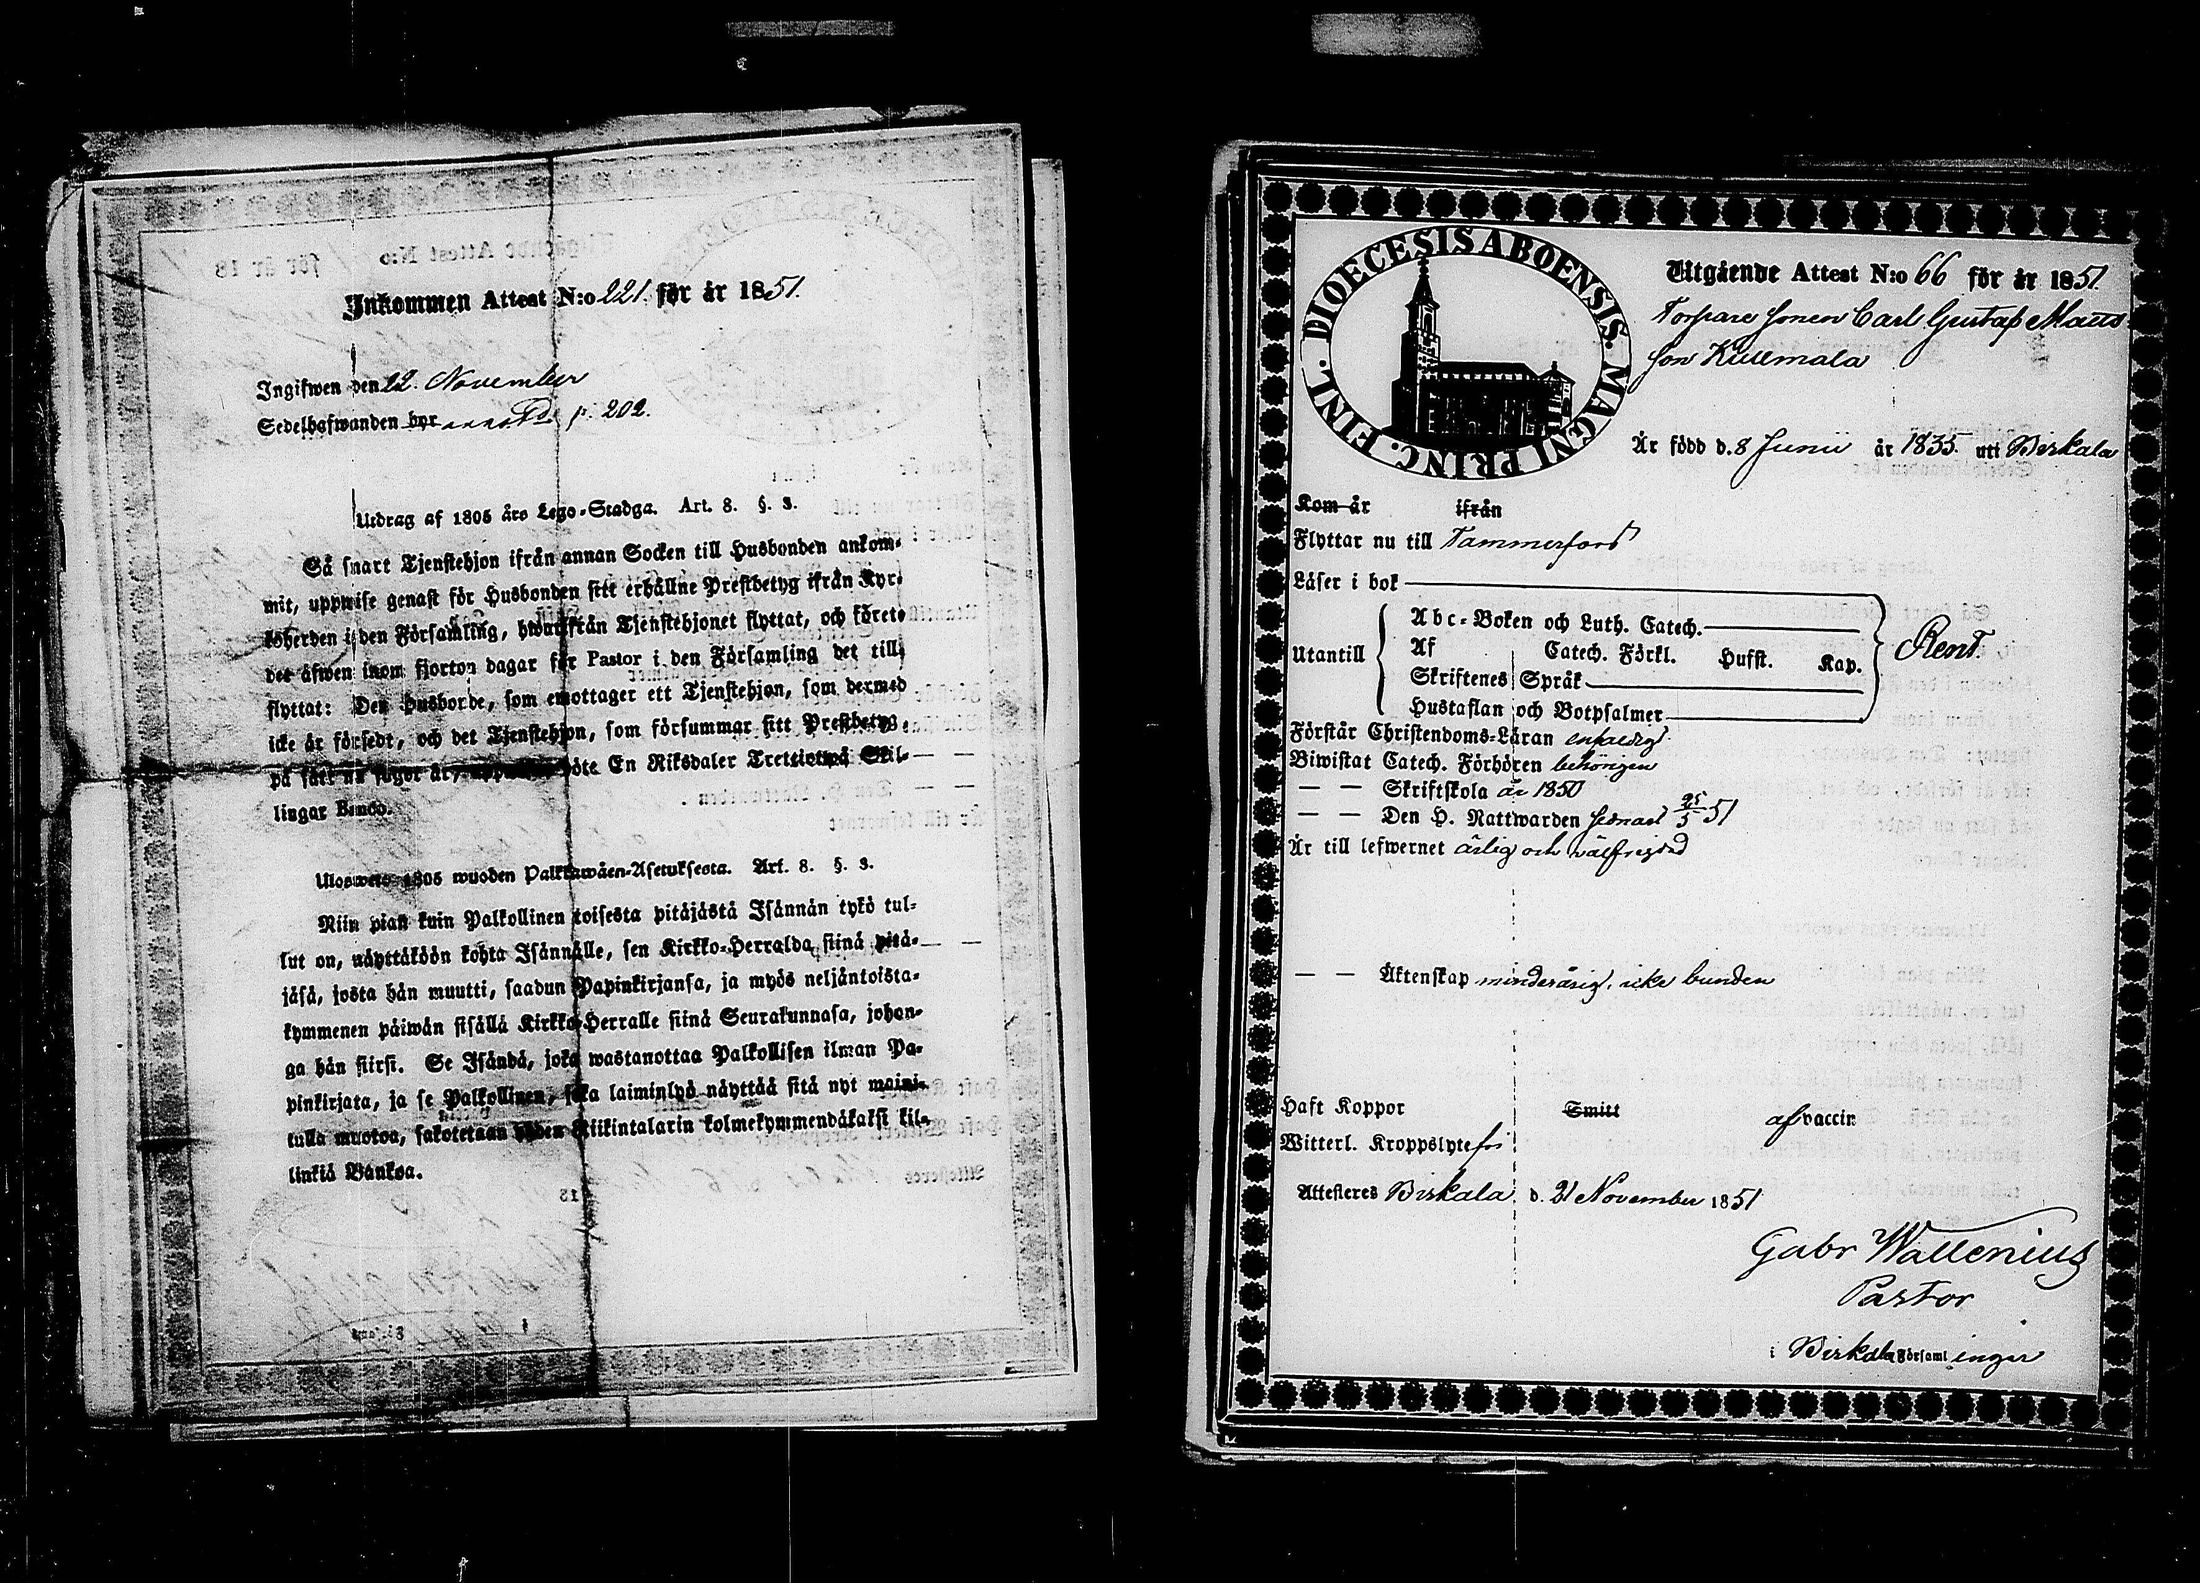 Inkommen Attest N:o 221. för år 1851.
Ingifwen den 22. November
Sedelhafwanden byr p. 202.
Utdrag af 1805 års Lego-Stadga. Art. 8. §. 3.
Så snart Tjenstehjon ifrån annan Socken till Husbonden ankom-
mit, uppwise genast för Husbonden sitt erhållne Prestbetyg ifrån Kyr-
koherden i den Församling, hwarifrån Tjenstehjonet flyttat, och förete
det äfwen inom fjorton dagar för Pastor i den Församling det till-
flyttat: Den Husbonde, som emottager ett Tjenstehjon, som dermed
icke är försedt, och det Tjenstehjon, som försummar sitt Prestbetyg
på sätt nu sagdt är, uppwisa böte En Riksdaler Trettiotwå Skil-
lingar Banco.
Ulosweto 1805 wuoden Palkkawäen-Asetuksesta. Art. 8. §. 3.
Niin pian kuin Palkollinen toisesta pitäjästä Isännän tykö tul-
lut on, näyttäköön kohta Isännälle, sen Kirkko-Herralda siinä pitä-
jäsä, josta hän muutti, saadun Papinkirjansa, ja myös neljäntoista-
kymmenen päiwän sisällä Kirkko-Herralle siinä Seurakunnasa, johon-
ga hän siirsi. Se Isändä, joka wastanottaa Palkollisen ilman Pa-
pinkirjata, ja se Palkollinen, joka laiminlyö näyttää sitä nyt maini-
tulla muotoa, sakotetaan yhden Riikintalarin kolmekymmendäkaksi kil-
linkiä Bankoa.
DIOECESIS ABOENSIS. MAGNI PRINC. FINL.
Utgående Attest N:o 66 för år 1851.
Torpare sonen Carl Gustaf Matts
son Kuuemala
Är född d. 8 Junii år 1835. utt Birkala
Kom år ifrån
Flyttar nu till Tammerfors
Läser i bok
Utantill
Abc-Boken och Luth. Catech.
Af Catech. Förkl. Hufst. Kap.
Skriftenes Språk
Hustaflan och Botpsalmer
Rent.
Förstår Christendoms-Läran enfaldigt
Biwistat Catech. Förhören behörigen
— — Skriftskola år 1850
— — Den H. Nattwarden sednast 25/5 51
Är till lefwernet ärlig och välfrejdad
— — Äktenskap minderårig, icke bunden
Haft Koppor Smitt af vaccin
Witterl. Kroppslyte fri
Attesteres Birkala d. 21 November 1851
Gabr Wallenius
Pastor
i Birkala Församl inger